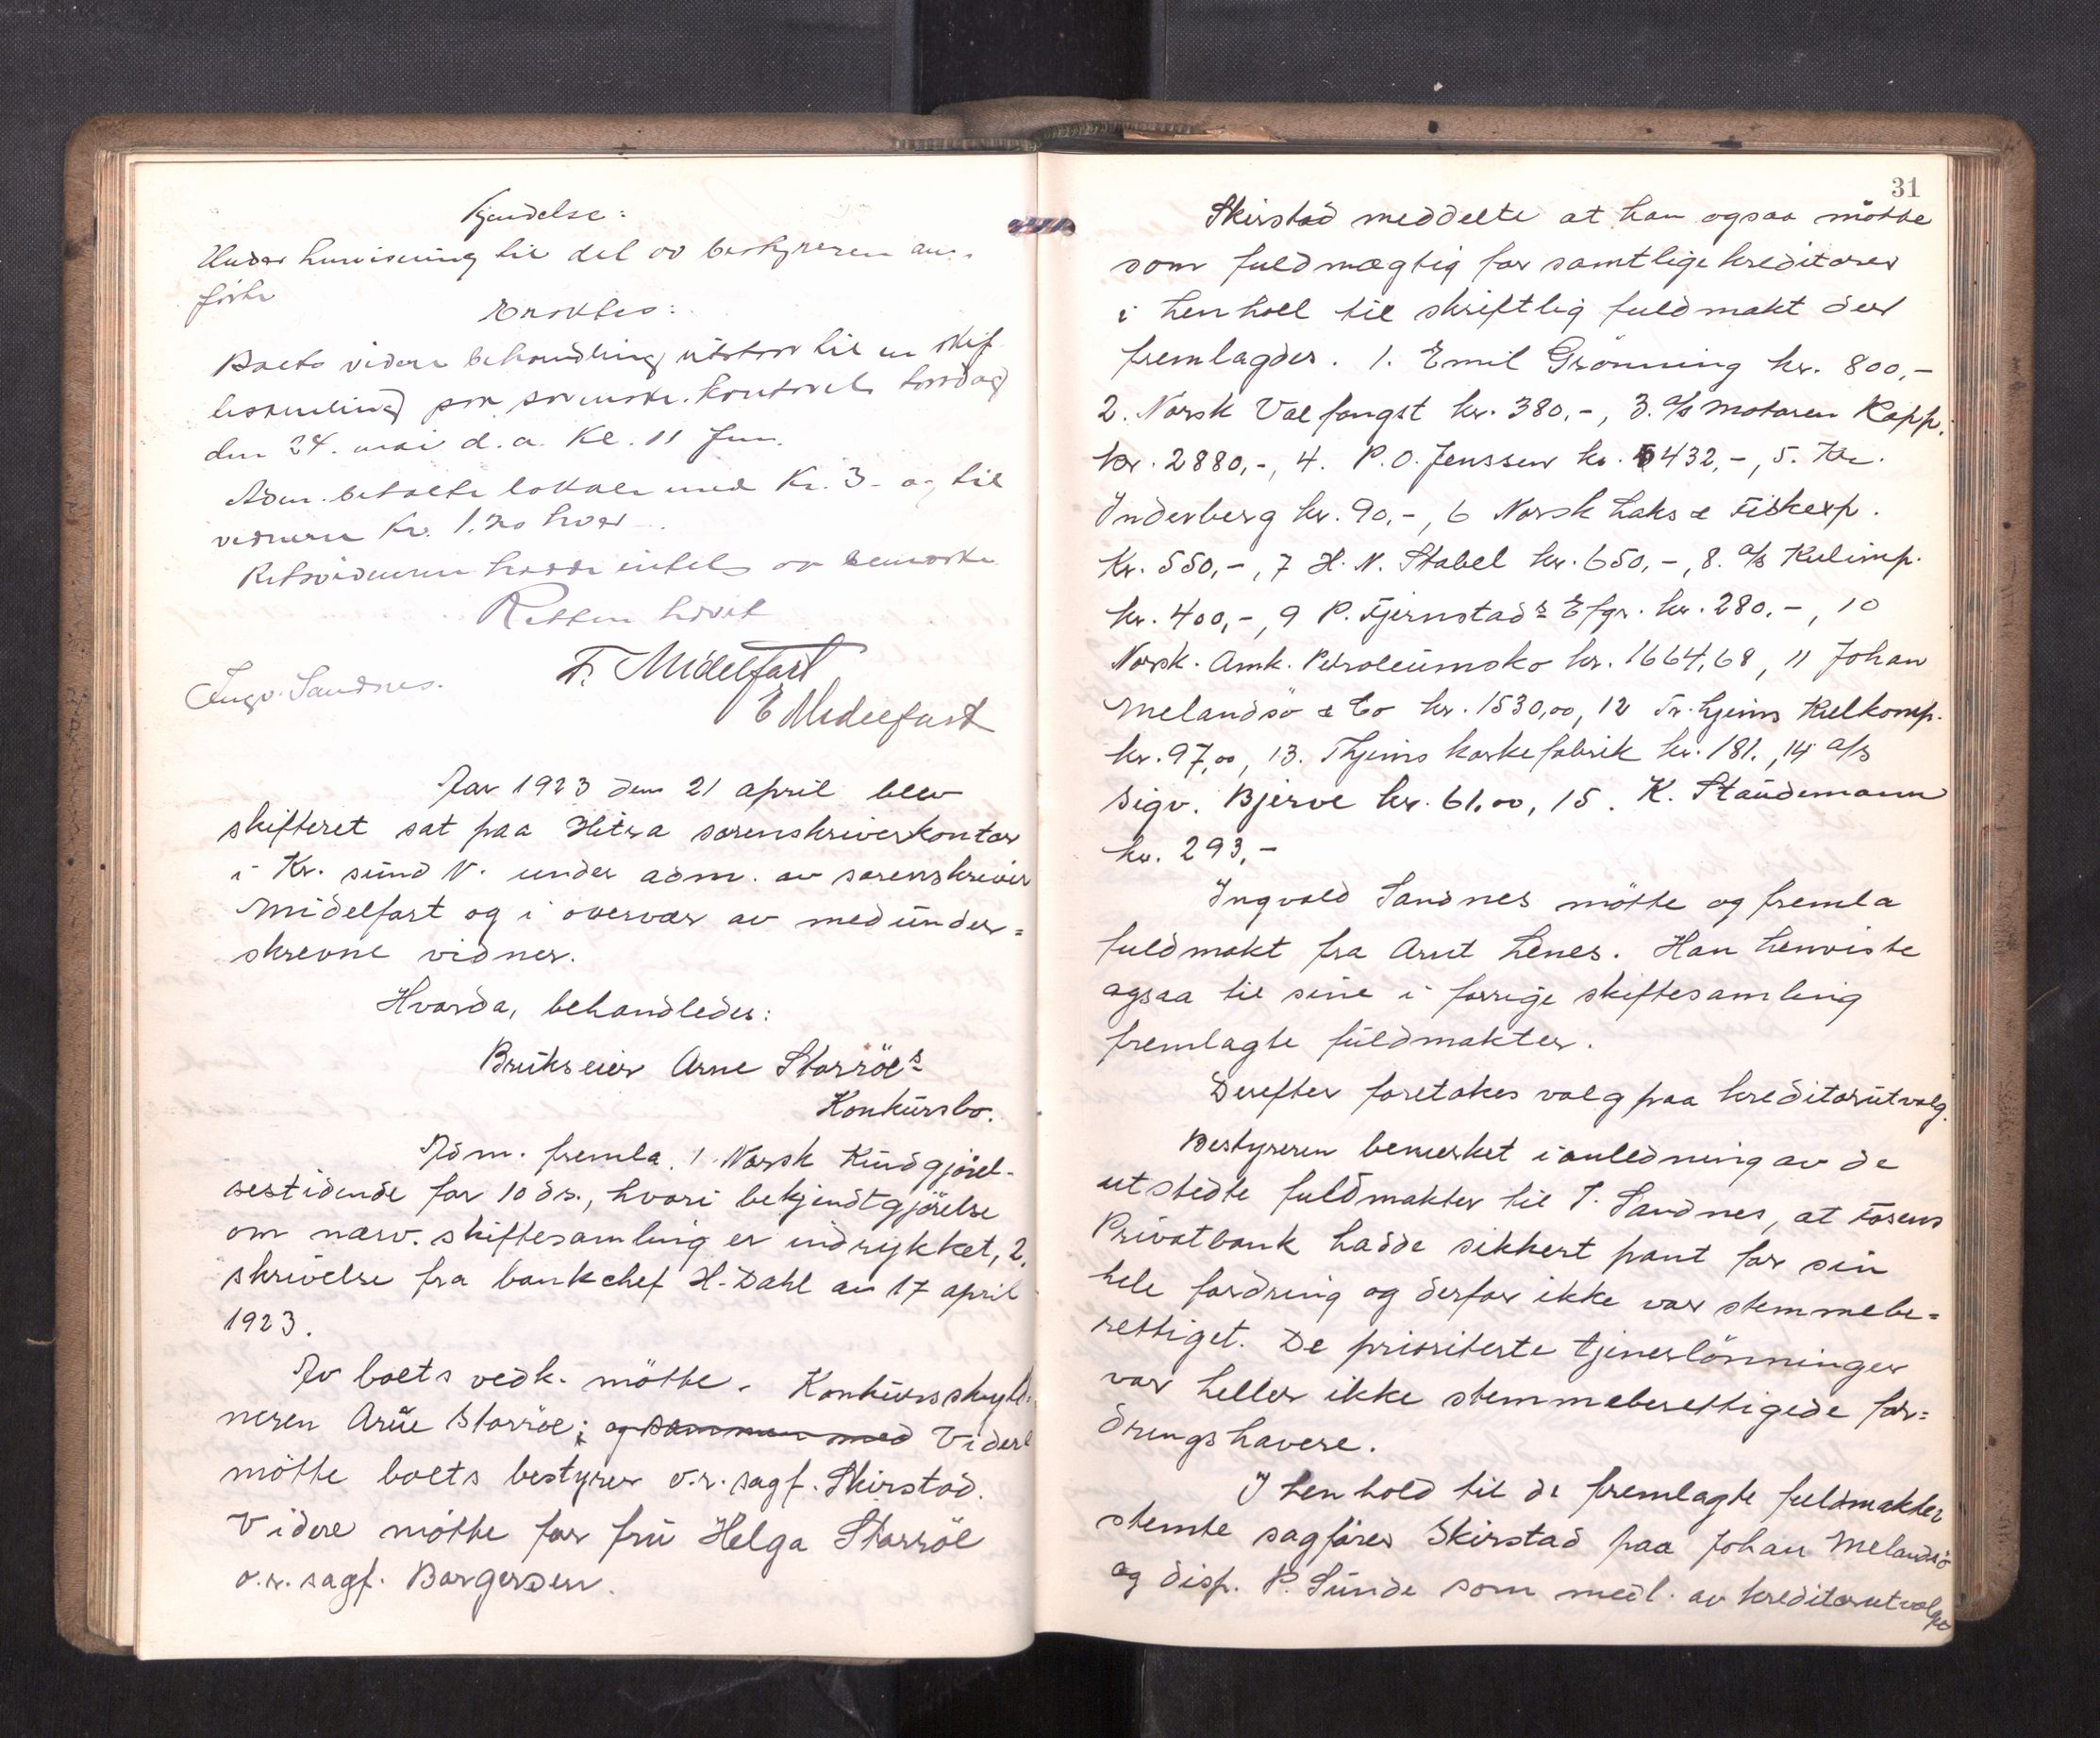 Kjendelse:
Under henvisning til det av bestyreren an-
førte
Eragtes:
Boets videre behandling utstaar til en skif
tesamling paa sorenskr. kontoret torsdag
den 24. mai d.a. Kl. 11 fm.
Adm. betalte lokale med Kr. 3 - og til
vidnerne Kr. 1.20 hver.
Retsvidnerne hadde intet at bemerke
Retten hævet
F. Midelfart
Ingv. Sandnes.
E Midelfart
Aar 1923 den 21 april blev
skifteret sat paa Hitra sorenskriverkontor
i Kr. sund N. under adm. av sorenskriver
Midelfart og i overvær av medunder=
skrevne vidner.
Hvorda, behandledes:
Brukseier Arne Storröes
Konkursbo.
Adm. fremla. 1. Norsk Kundgjørel-
sestidende for 10 ds., hvori bekjendtgjörelse
om nærv. skiftesamling er indrykket, 2.
skrivelse fra bankchef H. Dahl av 17 april
1923.
Av boets vedk. mötte. Konkursskyld-
neren Arne Storröe; og sammen med Videre
mötte boets bestyrer o.r. sagf. Skirstad.
Videre mötte for fru Helga Storröe
o.r. sagf. Borgersen.
31
Skirstad meddelte at han ogsaa mötte
som fuldmægtig for samtlige kreditorer
i henhold til skriftlig fuldmakt der
fremlagdes. 1. Emil Grönning kr. 800,-
2. Norsk Valfangst kr. 380,-, 3. A/S Motoren Rapp.
kr. 2880,-, 4. P.O. Jenssen kr. 5432,-, 5. Kr.
Inderberg kr. 90,-, 6 Norsk Laks & Fiskexp.
Kr. 550,-, 7 H. N. Stabel kr. 650,-, 8. A/S Kulimp.
kr. 400,-, 9 P. Fjernstads Efgr. kr. 280.-, 10
Norsk. Amk. Petroleumsko kr. 1664,68, 11 Johan
Melandsö & Co kr. 1530,00, 12 Tr.hjems Kulkomp.
kr. 97,00, 13. Thjems korkefabrik kr. 181., 14 A/S
Sigv. Bjerve kr. 61.00, 15. K. Staudemann
kr. 293,-
Ingvald Sandnes mötte og fremla
fuldmakt fra Arnt Lenes. Han henviste
ogsaa til sine i forrige skiftesamling
fremlagte fuldmakter.
Derefter foretokes valg paa kreditorutvalg.
Bestyreren bemerket i anledning av de
utstedte fuldmakter til I. Sandnes, at Fosens
Privatbank hadde sikkert pant for sin
hele fordring og derfor ikke var stemmebe=
rettiget. De prioriterte tjenerlönninger
var heller ikke stemmeberettigede for=
dringshavere.
I henhold til de fremlagte fuldmakter
stemte sagförer Skirstad paa Johan Melandsö
og disp. P. Sunde som medl. av kreditorutvalget